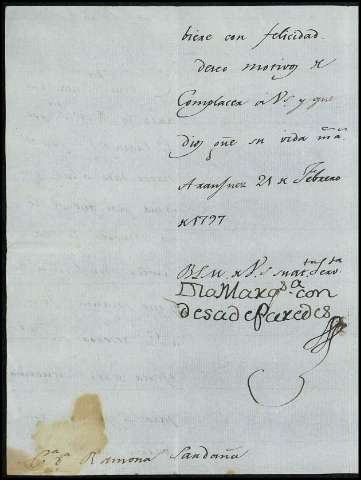 biere con felicidad.
deseo motivos de
Complacer a Vs. y que
Dios gue su vida ms. as.
Aranjuez 21 de Febrero
de 1797
BLM. de Vs. su
La Marqsa. con
desa de Paredes
Sra. Da. Ramona Sandaña